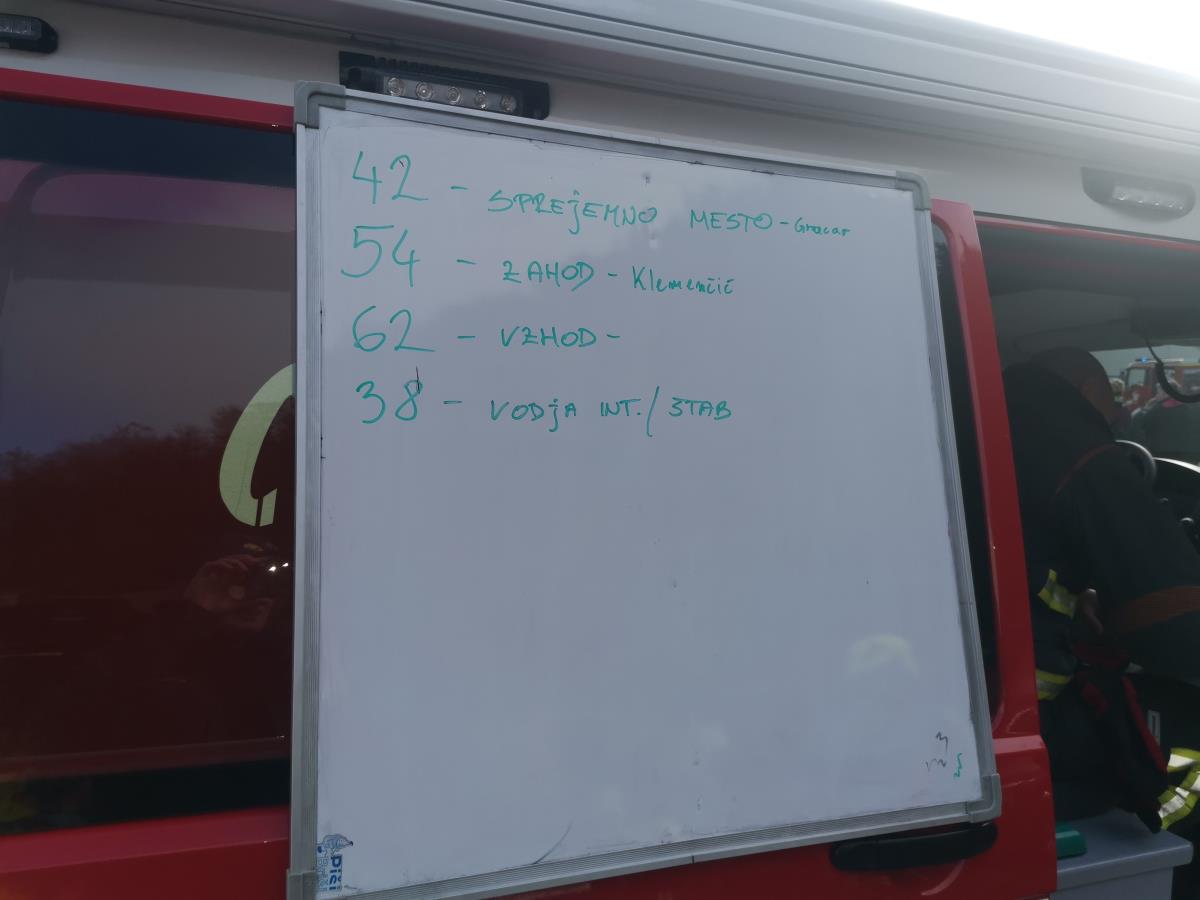 42 - SPREJEMNO MESTO - Gracar
54 - ZAHOD - Klemenčič
62 - VZHOD -
38 - VODJA INT. / ŠTAB
piši